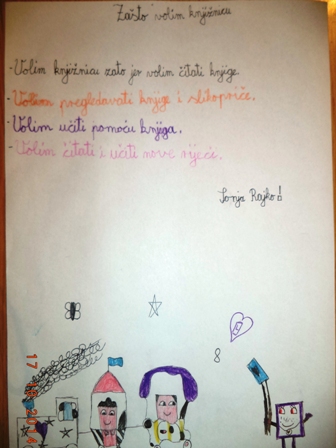 Zašto volim knjižnicu
-Volim knjižnicu zato jer volim čitati knjige.
-Volim pregledavati knjige i slikopriče.
-Volim učiti pomoću knjiga.
-Volim čitati i učiti nove riječi.
Sonja Rajko
8